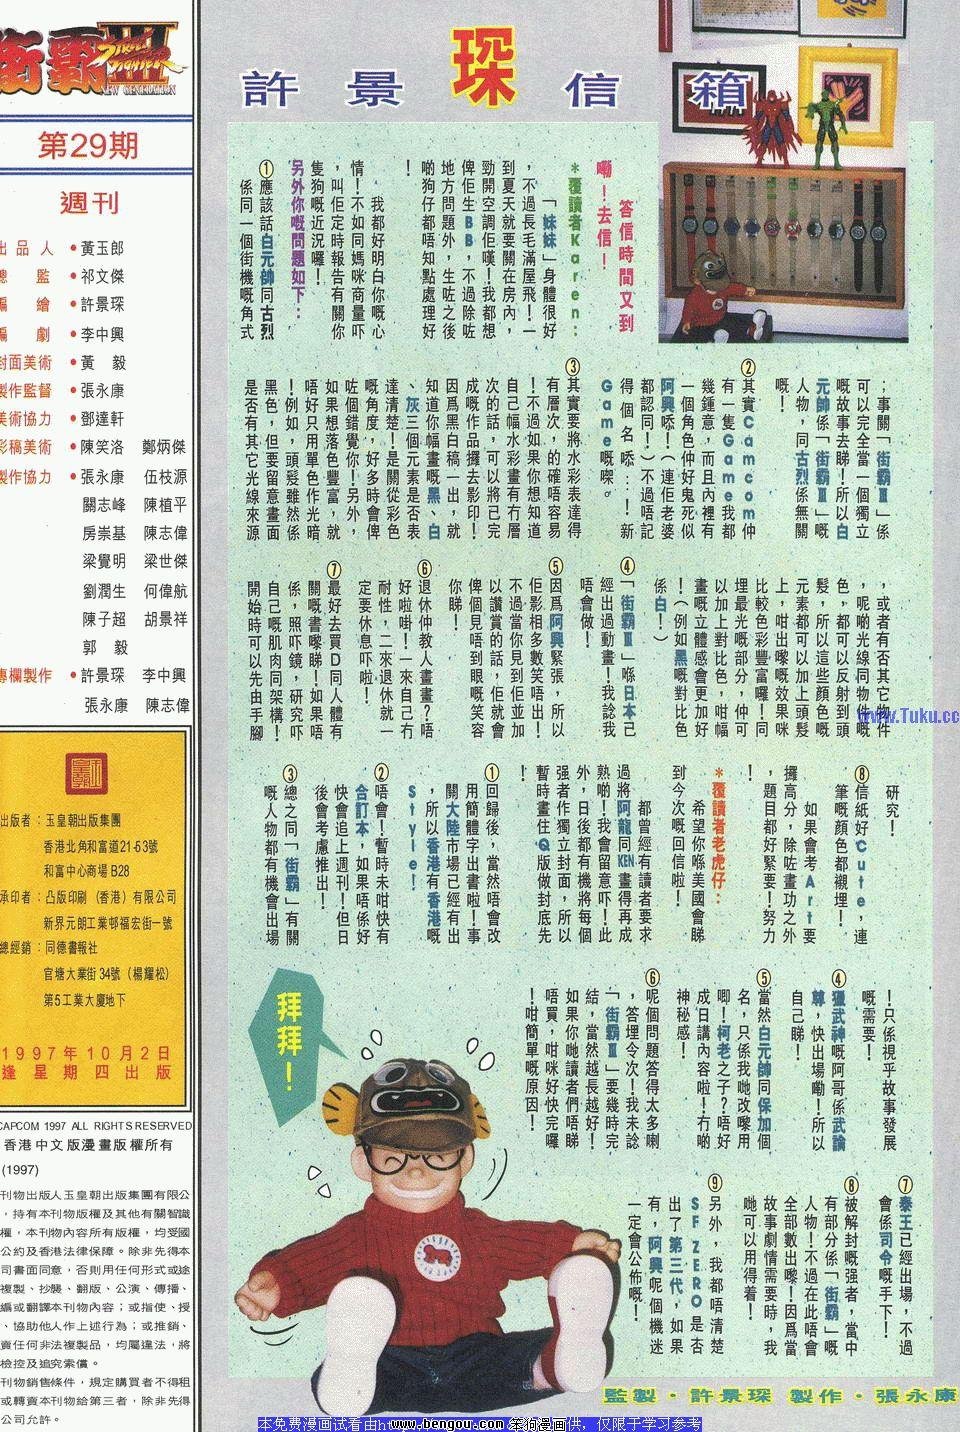 街霸III
STREET FIGHTER
NEW GENERATION
第29期
週刊
出品人•黃玉郎
總監•祁文傑
編繪•許景琛
編劇•李中興
封面美術•黃 毅
製作監督•張永康
美術協力•鄧達軒
彩稿美術•陳笑洛 鄭炳傑
製作協力•張永康 伍枝源
關志峰 陳植平
房崇基 陳志偉
梁覺明 梁世傑
劉潤生 何偉航
陳子超 胡景祥
郭 毅
專欄製作•許景琛 李中興
張永康 陳志偉
出版者：玉皇朝出版集團
香港北角和富道21-63號
和富中心商場B28
承印者：凸版印刷（香港）有限公司
新界元朗工業邨福宏街一號
總經銷：同德書報社
官塘大業街34號（楊耀松）
第5工業大廈地下
1997年10月2日
逢星期四出版
CAPCOM 1997 ALL RIGHTS RESERVED
香港中文版漫畫版權所有
(1997)
刊物出版人玉皇朝出版集團有限公
，持有本刊物版權及其他有關智識
權，本刊物內容所有版權，均受國
公約及香港法律保障。除非先得本
司書面同意，否則用任何形式或途
複製、抄襲、翻版、公演、傳播、
編或翻譯本刊物內容；或指使、授
、協助他人作上述行為；或推銷、
賣任何非法複製品，均屬違法，將
檢控及追究索償。
刊物銷售條件，規定購買者不得租
或轉賣本刊物給第三者，除非先得
公司允許。
許景琛信箱
答信時間又到
嘞！去信！
*覆讀者Karen：
「妹妹」身體很好
，不過長毛滿屋飛！一
到夏天就要關在房內，
勁開空調佢嘆！我都想
俾佢生BB，不過除咗
地方問題外，生咗之後
啲狗仔都唔知點處理好
！
我都好明白你嘅心
情！不如同媽咪商量吓
，叫佢定時報告有關你
隻狗嘅近況囉！
另外你嘅問題如下：
①應該話白元帥同古烈
係同一個街機嘅角式
；事關「街霸III」係
可以完全當一個獨立
嘅故事去睇！所以白
元帥係「街霸III」嘅
人物，同古烈係無關
嘅！
②其實Camcom仲
有一隻Game我都
幾鍾意，而且內裡有
一個角色仲好鬼死似
阿興㗎！（連佢老婆
都認同！）不過唔記
得個名㗎…！新
Game嘅㗎。
③其實要將水彩表達得
有層次，的確唔容易
！不過如果你想知道
自己幅水彩畫有冇層
次的話，可以將已完
成嘅作品攞去影印！
因爲黑白稿一出，就
知道你幅畫嘅黑、白
、灰三個元素是否表
達清楚！是關從彩色
嘅角度，好多時會俾
咗個錯覺你！另外，
如果想落色豐富，就
唔好只用單色作光暗
！例如，頭髮雖然係
黑色，但要留意畫面
是否有其它光線來源
，或者有否其它物件
，呢啲光線同物件嘅
色，都可以反射到頭
髮，所以這些顏色嘅
元素都可以加上頭髮
上，咁出嚟嘅效果咪
比較色彩豐富囉！同
埋最光嘅部分，仲可
以加上對比色，咁幅
畫嘅立體感會更加好
！（例如黑嘅對比色
係白！）
④「街霸III」喺日本已
經出過動畫！我諗我
唔會做！
⑤因爲阿興緊張，所以
佢影相多數笑唔出！
不過當你見到佢並加
以讚賞的話，佢就會
俾個見唔到眼嘅笑容
你睇！
⑥退休仲教人畫畫？唔
好啦啩！一來自己冇
耐性，二來退休就一
定要休息吓啦！
⑦最好去買D同人體有
關嘅書嚟睇！如果唔
係，照吓鏡，研究吓
自己嘅肌肉同架構！
開始時可以先由手腳
研究！
⑧信紙好Cute，連
筆嘅顏色都襯埋！
如果會考Art要
攞高分，除咗畫功之外
，題目都好緊要！努力
！
*覆讀者老虎仔：
希望你喺美國會睇
到今次嘅回信啦！
都曾經有讀者要求
過將阿龍同KEN畫得再成
熟啲！我會留意吓！此
外，日後都有機將每個
强者作獨立封面，所以
暫時畫住Q版做封底先
！
①回歸後，當然唔會改
用簡體字出書啦！事
關大陸市場已經有出
，所以香港有香港嘅
Style！
②唔會！暫時未咁快有
合訂本，如果唔係好
快會追上週刊！但日
後會考慮推出！
③總之同「街霸」有關
嘅人物都有機會出場
！只係視乎故事發展
嘅需要！
④獵武神嘅阿哥係武論
尊，快出場嘞！所以
自己睇！
⑤當然白元帥同保加個
名，只係我哋改嚟用
唧！柯老之子？唔好
成日講內容啦！冇啲
神秘感！
⑥呢個問題答得太多喇
，答埋令次！我未諗
「街霸III」要幾時完
結，當然越長越好！
如果你哋讀者們唔睇
唔買，咁咪好快完囉
！咁簡單嘅原因！
⑦泰王已經出場，不過
會係司令嘅手下！
⑧被解封嘅强者，當中
有部分係「街霸」嘅
人物！不過在此唔會
全部數出嚟！因爲當
故事劇情需要時，我
哋可以用得着！
⑨另外，我都唔清楚
SF ZERO是否
出了第三代，如果
有，阿興呢個機迷
一定會公佈嘅！
拜拜！
監製·許景琛 製作·張永康
www.Tuku.cc
本免费漫画试看由http www.bengou.com 笨狗漫画提供，仅限于学习参考